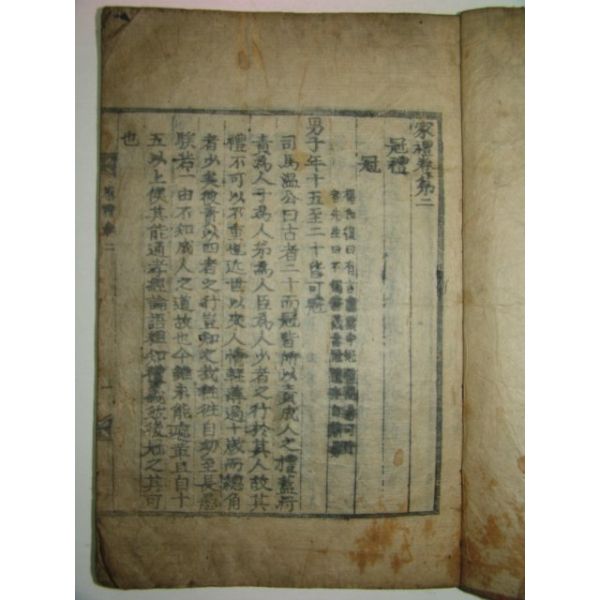 家禮卷第二
冠禮
冠
楊氏復曰有言書儀中冠禮簡易可行
者先生曰不獨書儀古冠禮亦自簡易
男子年十五至二十皆可冠
司馬溫公曰古者二十而冠皆所以責成人之禮蓋將
責爲人子爲人弟爲人臣爲人少者之行於其人故其
禮不可以不重也近世以來人情輕薄過十歲而總角
者少矣彼責以四者之行豈知之哉往往自幼至長愚
騃若一由不知成人之道故也今雖未能遽革且自十
五以上俟其能通孝經論語粗知禮義然後冠之其可
也
家禮卷二
一